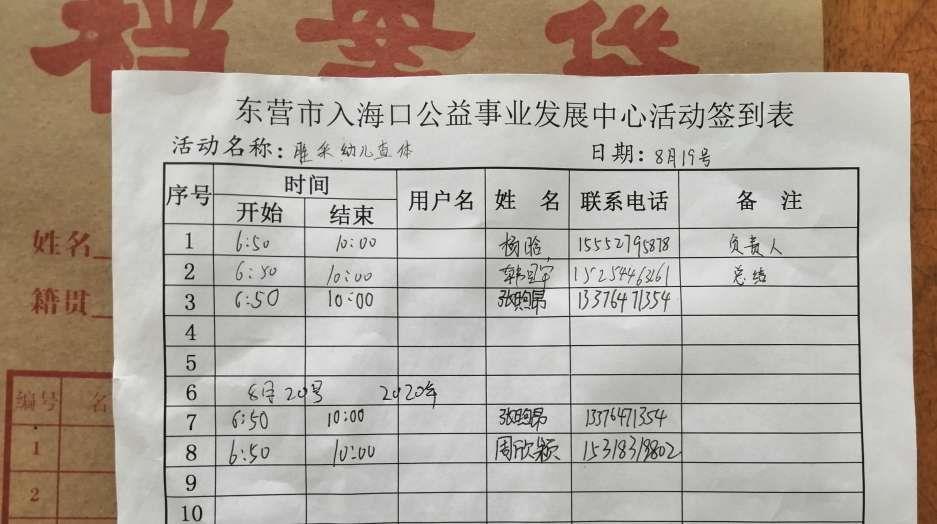 档案袋
东营市入海口公益事业发展中心活动签到表
活动名称：雅乐幼儿查体 日期：8月19号
序号 时间 用户名 姓 名 联系电话 备 注
开始 结束
1 6:50 10:00 杨晗 15552795878 负责人
2 6:50 10:00 15254463161 总结
3 6:50 10:00 张煦昂 13376471354
4
5
6 8月20号 2020年
7 6:50 10:00 张煦昂 13376471354
8 6:50 10:00 周欣颖 15318319802
9
10
姓名
籍贯
编号 名
1
2